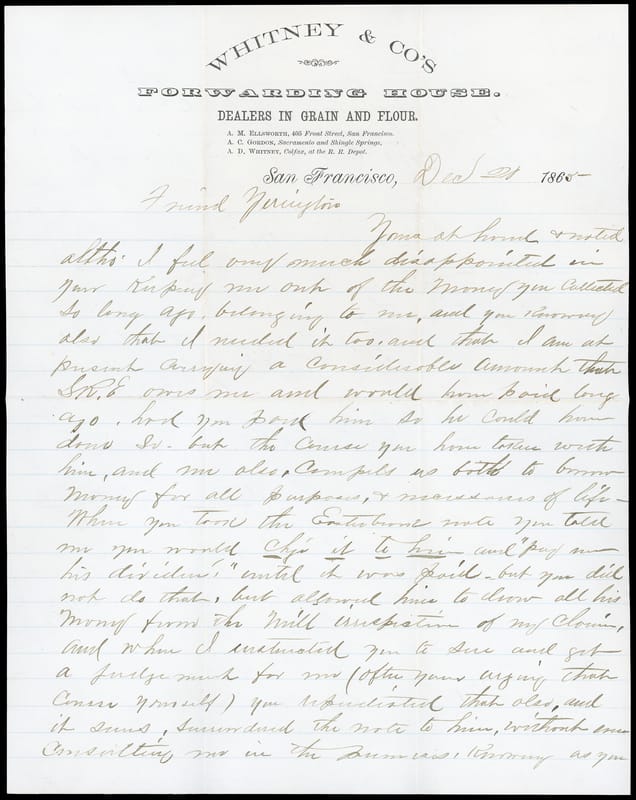 WHITNEY & CO'S
FORWARDING HOUSE.
DEALERS IN GRAIN AND FLOUR.
A. M. ELLSWORTH, 405 Front Street, San Francisco.
A. C. GORDON, Sacramento and Shingle Springs,
A. D. WHITNEY, Colfax, at the R. R. Depot.
San Francisco, Decr 21 1865
Friend Yerington
Yours at hand & noted
altho' I feel very much disappointed in
your Keeping me out of the Money you Collected
so long ago, belonging to me, and you Knowing
also that I needed it too, and that I am at
present carrying a considerable amount that
owes me and would have paid long
ago, had you paid him so he could have
done so - but the course you have taken with
him, and me also, Compels us both to borrow
Money for all purposes, & necessaries of life -
When you took the note you told
me you would chg's it to him and "pay me
his dividend" until it was paid - but you did
not do that, but allowed him to draw all his
Money from the Mill irrespective of my Claim,
and when I instructed you to sue and get
a judgement for me (after your urging that
Course yourself) you repudiated that also, and
it seems, surrendered the note to him, without even
Consulting me in the premises, Knowing as you